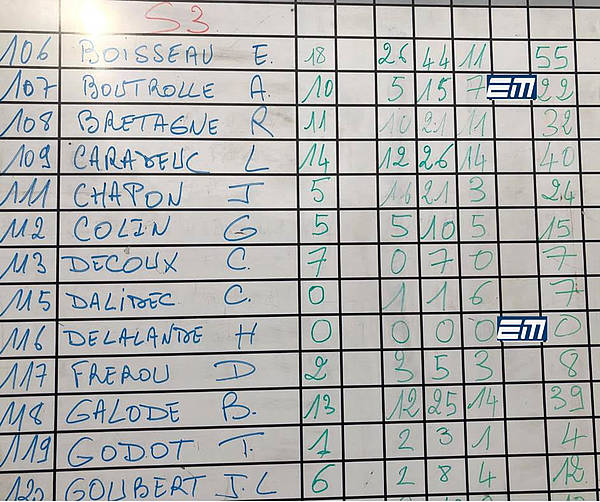 S3
106 BOISSEAU E. 18 26 44 11 55
107 BOUTROLLE A. 10 5 15 7 EM 22
108 BRETAGNE R 11 10 21 11 32
109 CARADEUC L 14 12 26 14 40
111 CHAPON J 5 16 21 3 24
112 COLIN G 5 5 10 5 15
113 DECOUX C. 7 0 7 0 7
115 DALIDEC C. 0 1 1 6 7
116 DELALANDE H 0 0 0 0 EM 0
117 FREROU D 2 3 5 3 8
118 GALODE B. 13 12 25 14 39
119 GODOT T. 1 2 3 1 4
120 GOUBERT J.L 6 2 8 4 12